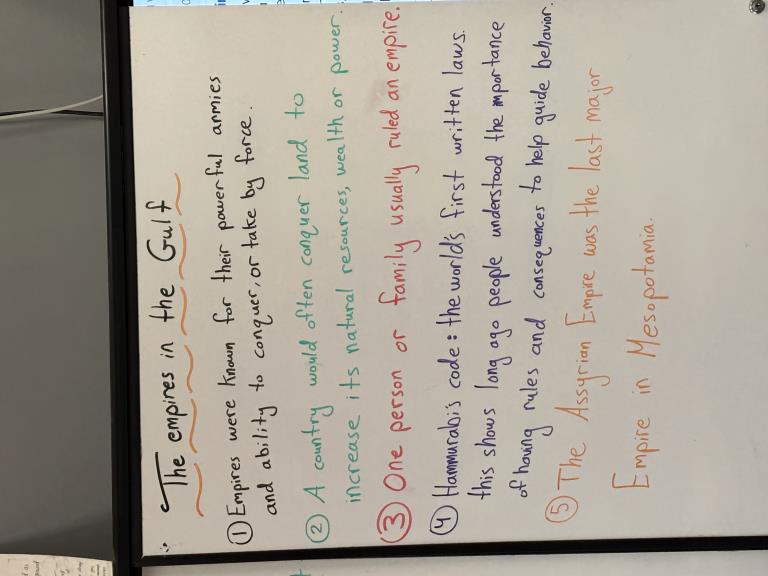 The empires in the Gulf
① Empires were known for their powerful armies
and ability to conquer, or take by force.
② A country would often conquer land to
increase its natural resources, wealth or power.
③ One person or family usually ruled an empire.
④ Hammurabi's code: the world's first written laws.
this shows long ago people understood the importance
of having rules and consequences to help guide behavior.
⑤ The Assyrian Empire was the last major
Empire in Mesopotamia.